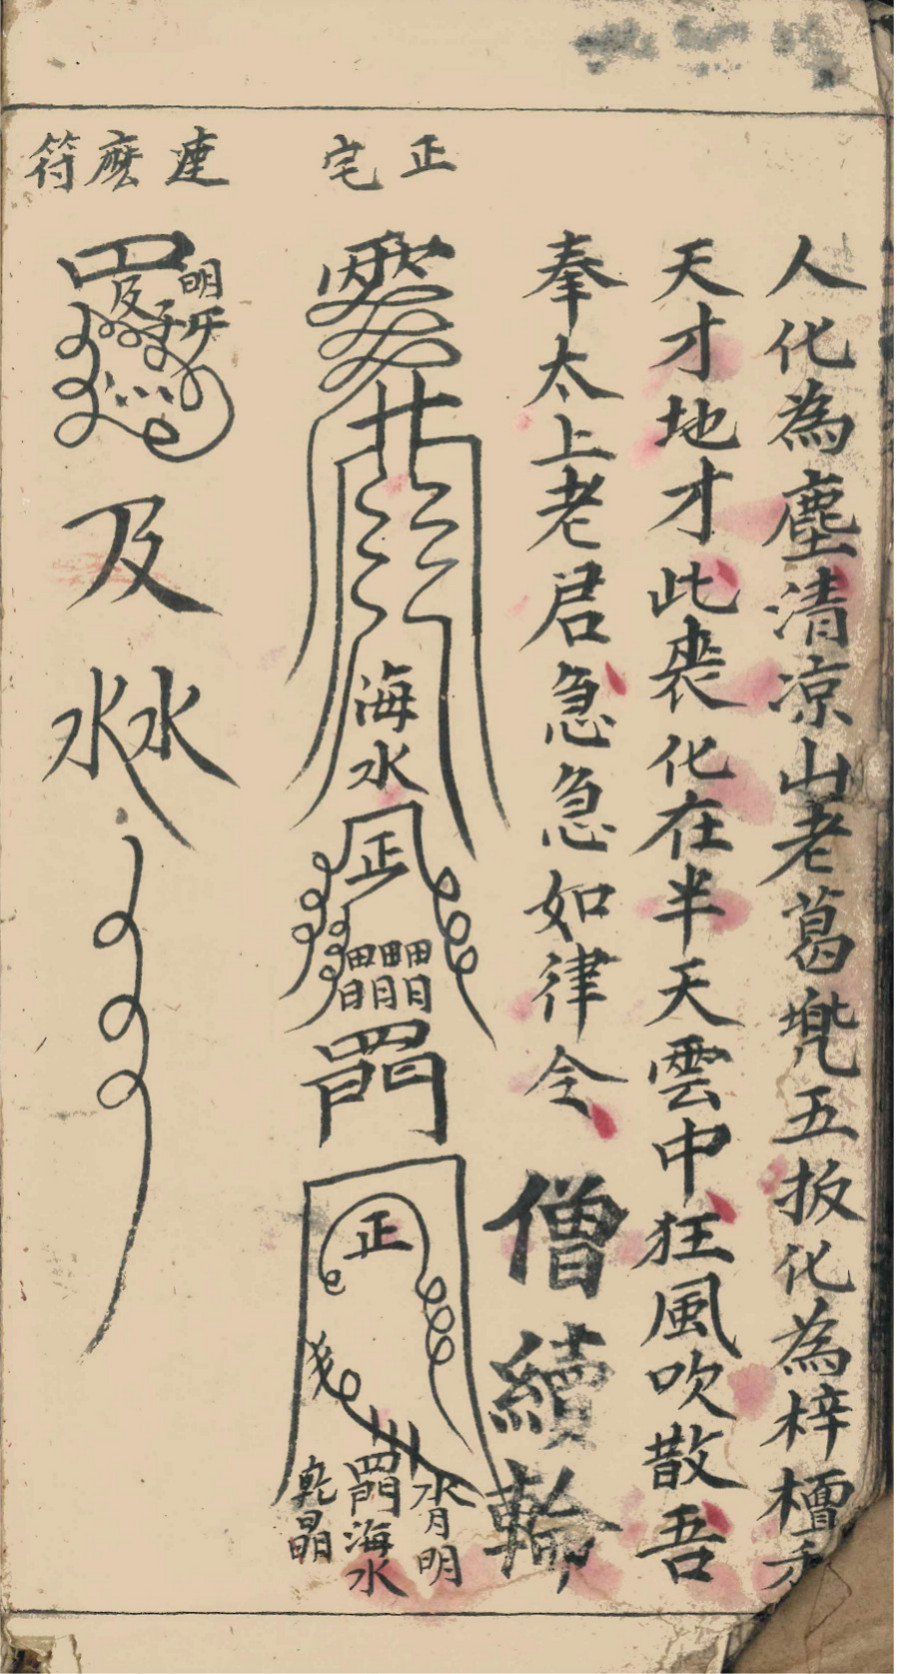 人化為塵清凉山老葛兠五扳化為梓檀
天才地才此喪化在半天雲中狂風吹散吾
奉太上老君急急如律令
僧續輪
正宅
海水
正
正
水月明
海水
乾晶
連麽符
明
及
水水